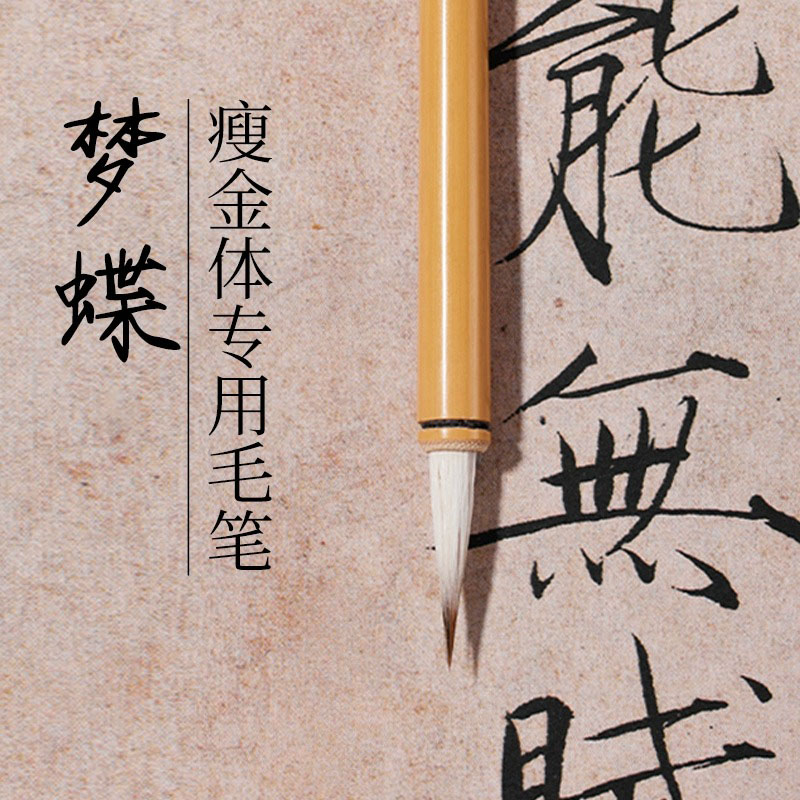 能無賦
瘦金体专用毛笔
梦蝶